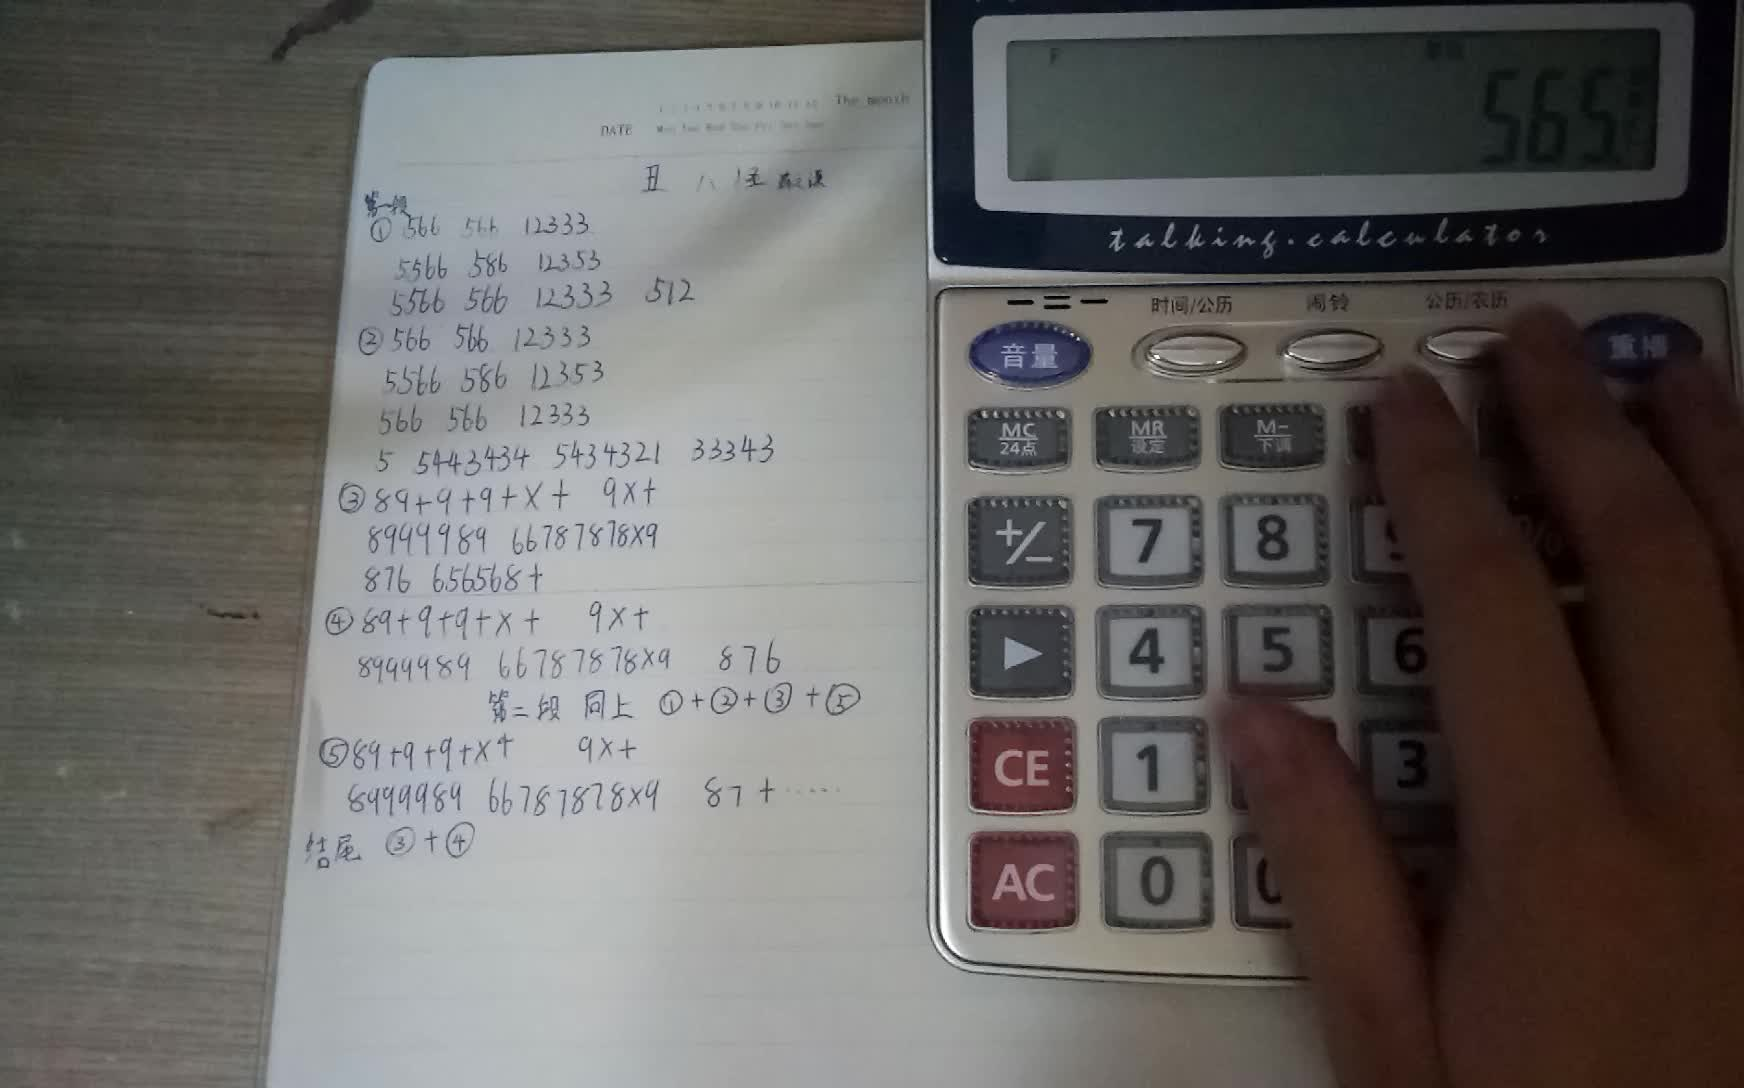 The month
DATE
丑 八 怪 薛之谦
第一段
① 566 566 12333
5566 586 12353
5566 566 12333 512
② 566 566 12333
5566 586 12353
566 566 12333
5 5443434 5434321 33343
③ 89+9+9+×+ 9×+
8999989 66787878×9
876 656568+
④ 89+9+9+×+ 9×+
8999989 66787878×9 876
第二段 同上 ①+②+③+⑤
⑤ 89+9+9+×+ 9×+
8999989 66787878×9 87+……
结尾 ③+④
F
565
talking.calculator
时间/公历 闹铃 公历/农历
音量 重播
MC 24点 MR 设定 M- 下调
+/− 7 8
▶ 4 5 6
CE 1 3
AC 0